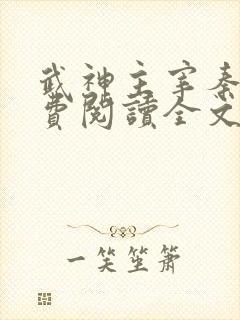 武神主宰秦
費閱讀全文
一笑坐簫